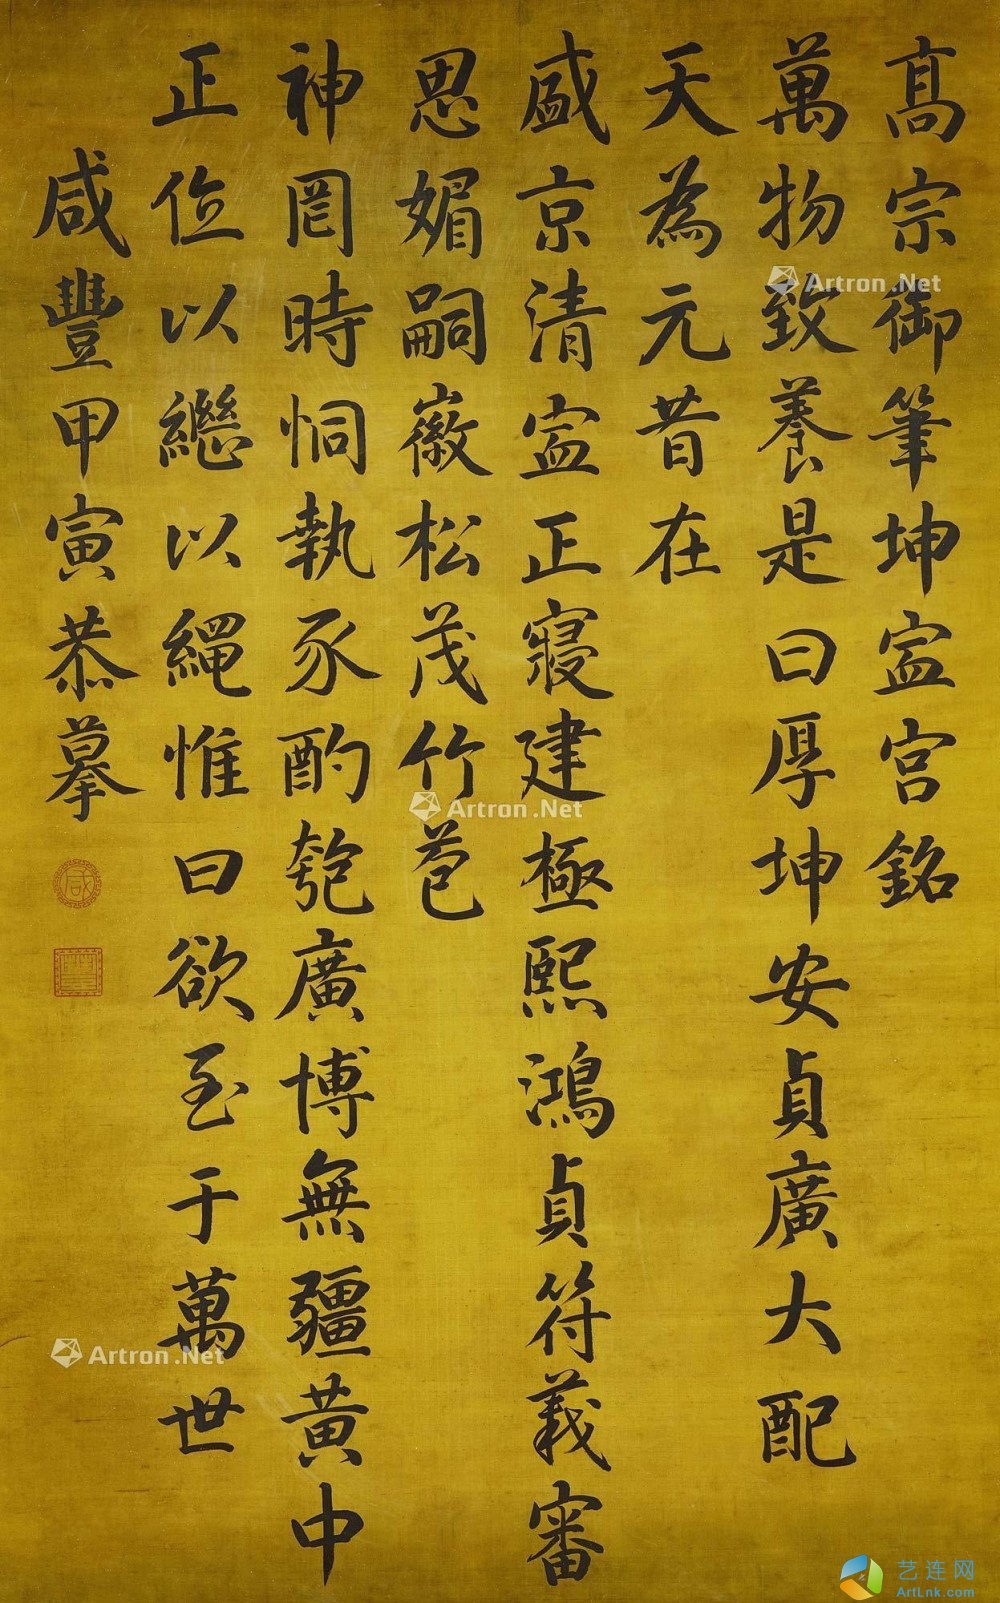 髙宗御筆坤寍宮銘
萬物致養是曰厚坤安貞廣大配
天為元昔在
盛京清寍正寢建極熙鴻貞符義審
思媚嗣徽松茂竹苞
神罔時恫執豕酌匏廣博無疆黃中
正位以繼以繩惟曰欲至于萬世
咸豐甲寅恭摹
咸
Artron.Net
Artron.Net
Artron.Net
艺连网
ArtLnk.com